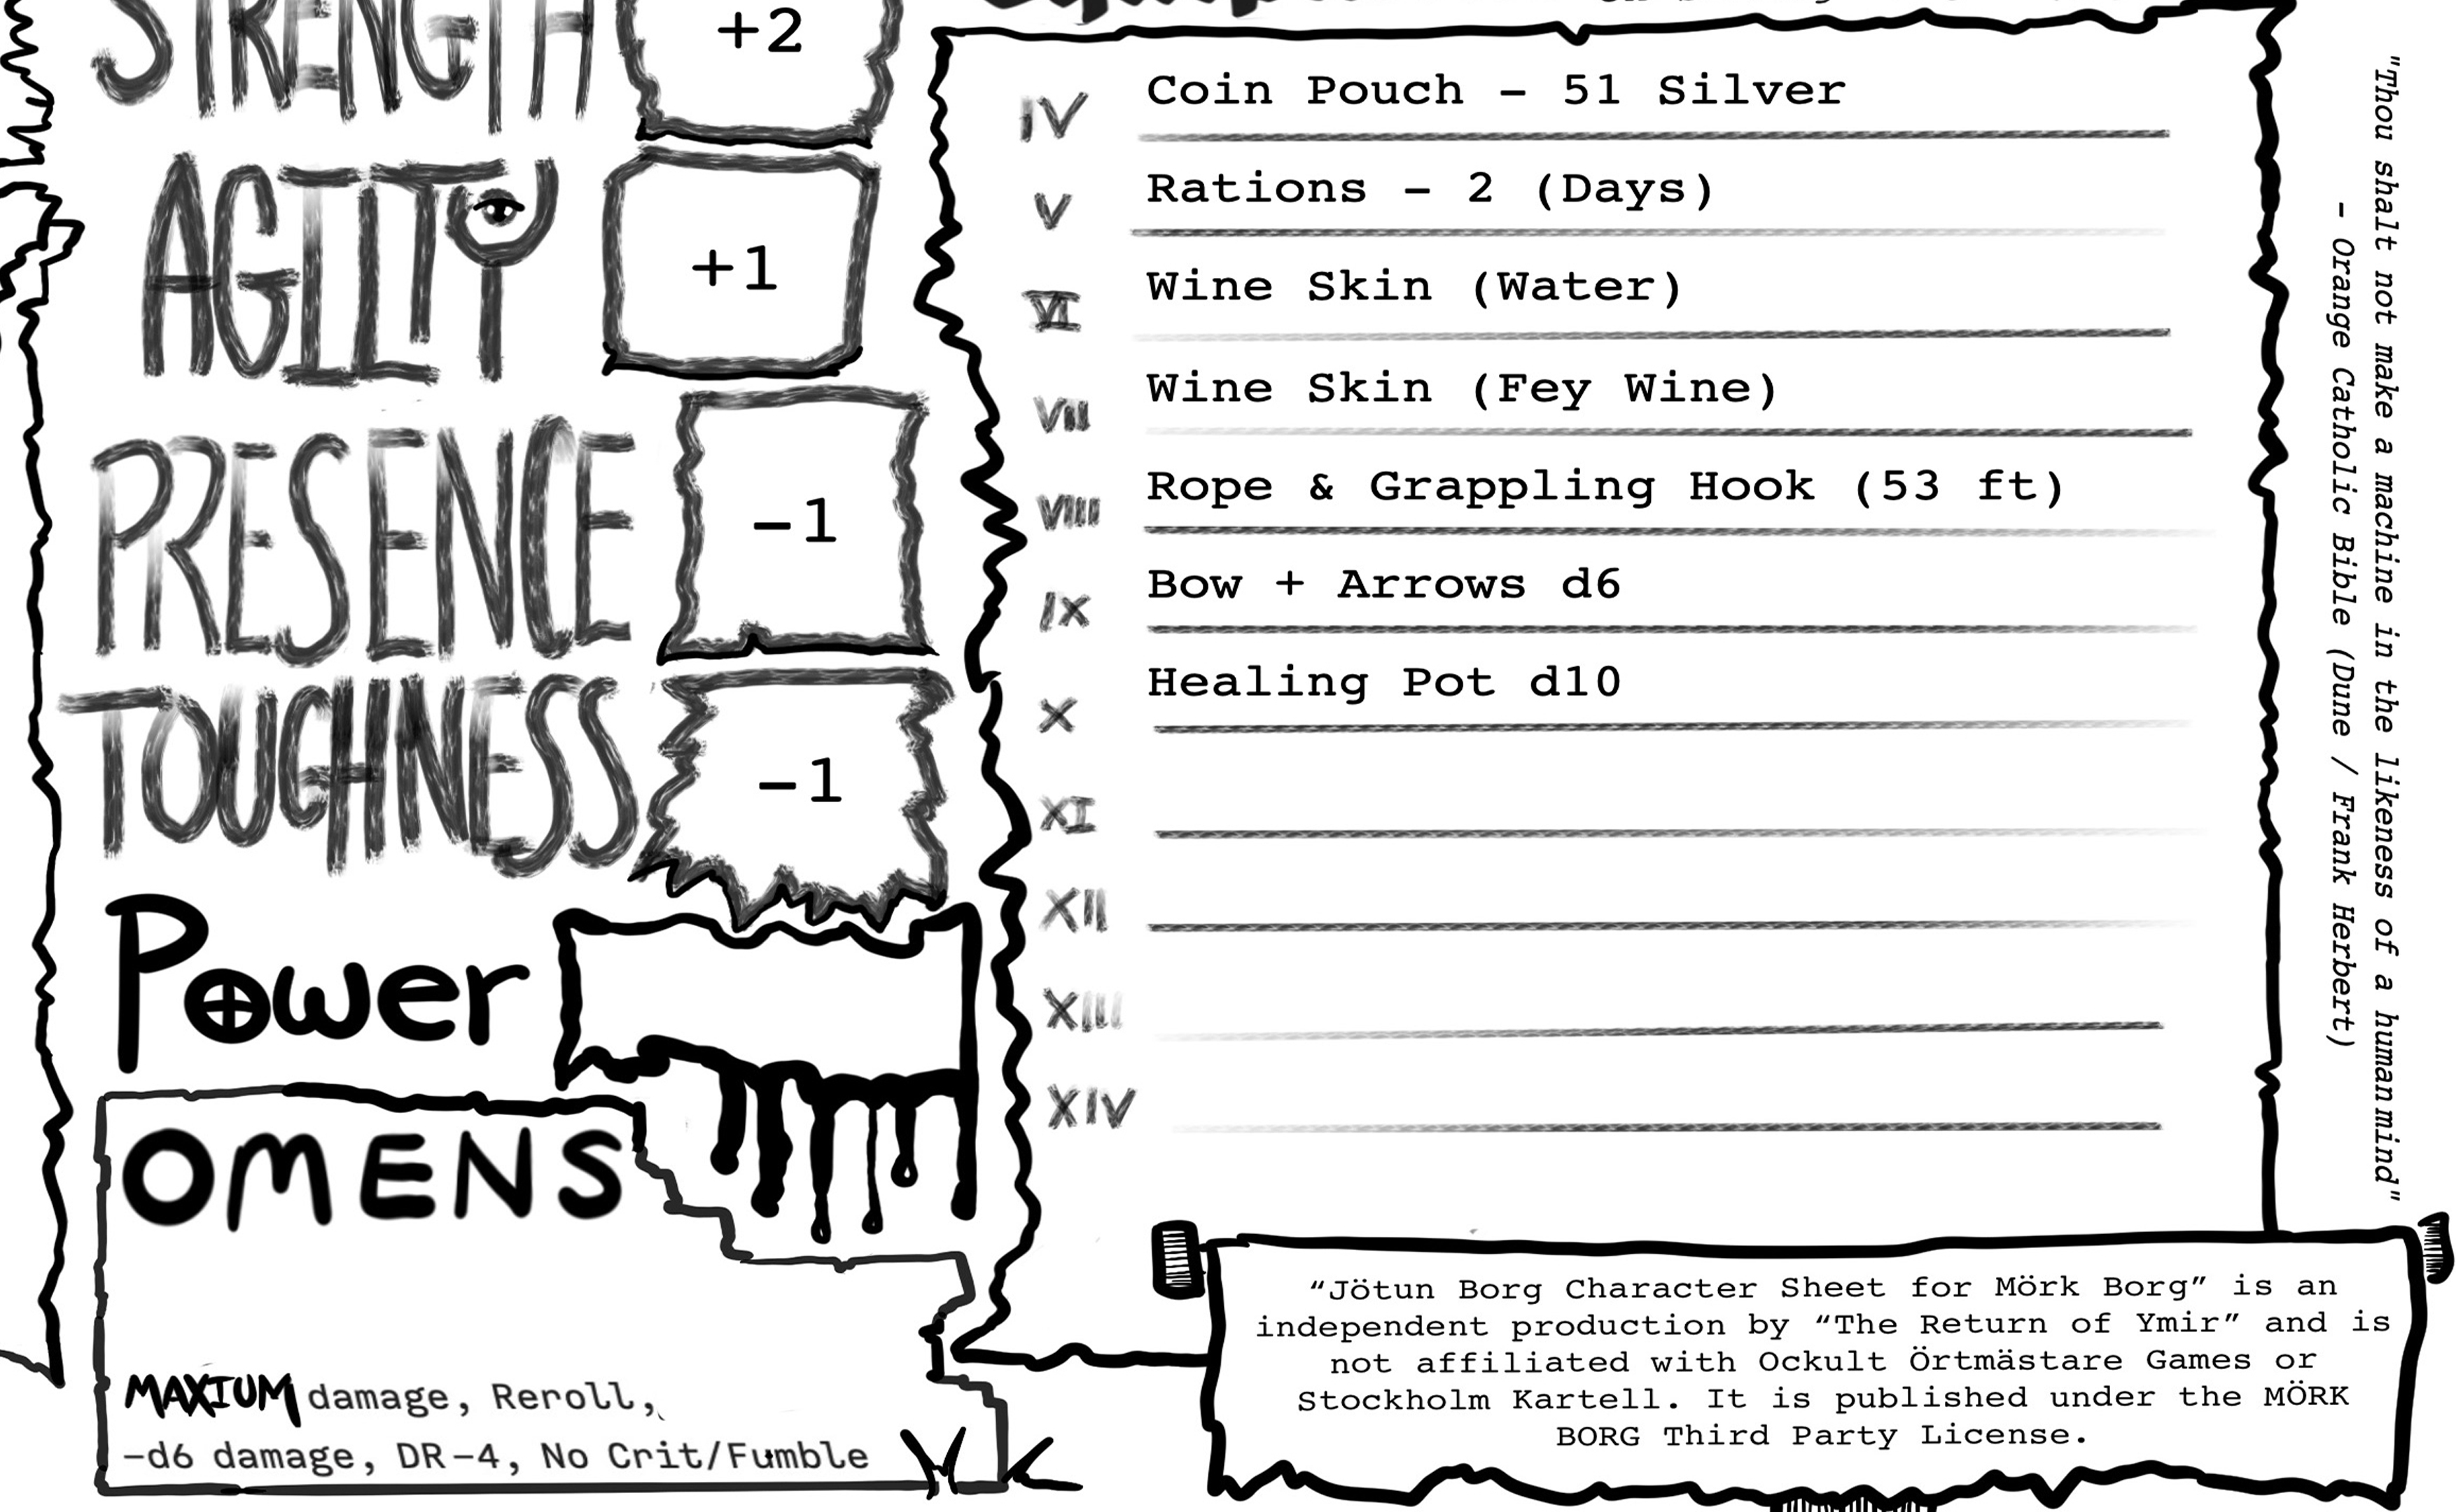 STRENGTH +2
AGILITY +1
PRESENCE -1
TOUGHNESS -1
Power
OMENS
MAXIUM damage, Reroll,
-d6 damage, DR-4, No Crit/Fumble
IV Coin Pouch - 51 Silver
V Rations - 2 (Days)
VI Wine Skin (Water)
VII Wine Skin (Fey Wine)
VIIII Rope & Grappling Hook (53 ft)
IX Bow + Arrows d6
X Healing Pot d10
XI
XII
XIII
XIV
"Thou shalt not make a machine in the likeness of a human mind"
- Orange Catholic Bible (Dune / Frank Herbert)
“Jötun Borg Character Sheet for Mörk Borg” is an
independent production by “The Return of Ymir” and is
not affiliated with Ockult Örtmästare Games or
Stockholm Kartell. It is published under the MÖRK
BORG Third Party License.